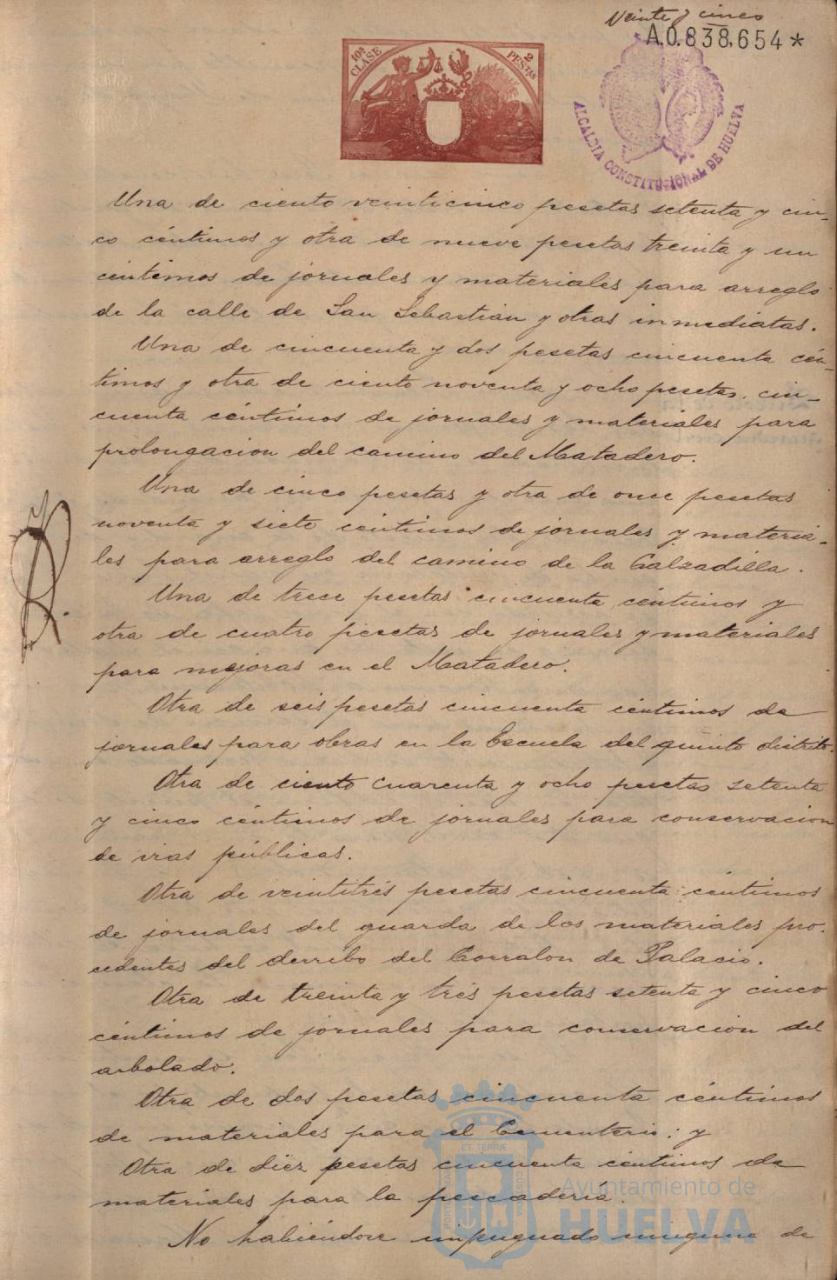 Veinte y cinco
A0.838,654*
10ª CLASE
2 PESETAS
ALCALDIA CONSTITUCIONAL DE HUELVA
Una de ciento veinticinco pesetas setenta y cin-
co céntimos y otra de nueve pesetas treinta y un
céntimos de jornales y materiales para arreglo
de la calle de San Sebastián y otras inmediatas.
Una de cincuenta y dos pesetas cincuenta cén-
timos y otra de ciento noventa y ocho pesetas cin-
cuenta céntimos de jornales y materiales para
prolongacion del camino del Matadero.
Una de cinco pesetas y otra de once pesetas
noventa y siete céntimos de jornales y materia-
les para arreglo del camino de la Calzadilla.
Una de trece pesetas cincuenta céntimos y
otra de cuatro pesetas de jornales y materiales
para mejoras en el Matadero.
Otra de seis pesetas cincuenta céntimos de
jornales para obras en la Escuela del quinto distrito.
Otra de ciento cuarenta y ocho pesetas setenta
y cinco céntimos de jornales para conservacion
de vias públicas.
Otra de veintitrés pesetas cincuenta céntimos
de jornales del guarda de los materiales pro-
cedentes del derribo del Corralon de Palacio.
Otra de treinta y trés pesetas setenta y cinco
céntimos de jornales para conservacion del
arbolado.
Otra de dos pesetas cincuenta céntimos
de materiales para el Cementerio; y
Otra de diez pesetas cincuenta céntimos de
materiales para la pescaderia.
No habiéndose impugnado ninguna de
Ayuntamiento de
HUELVA